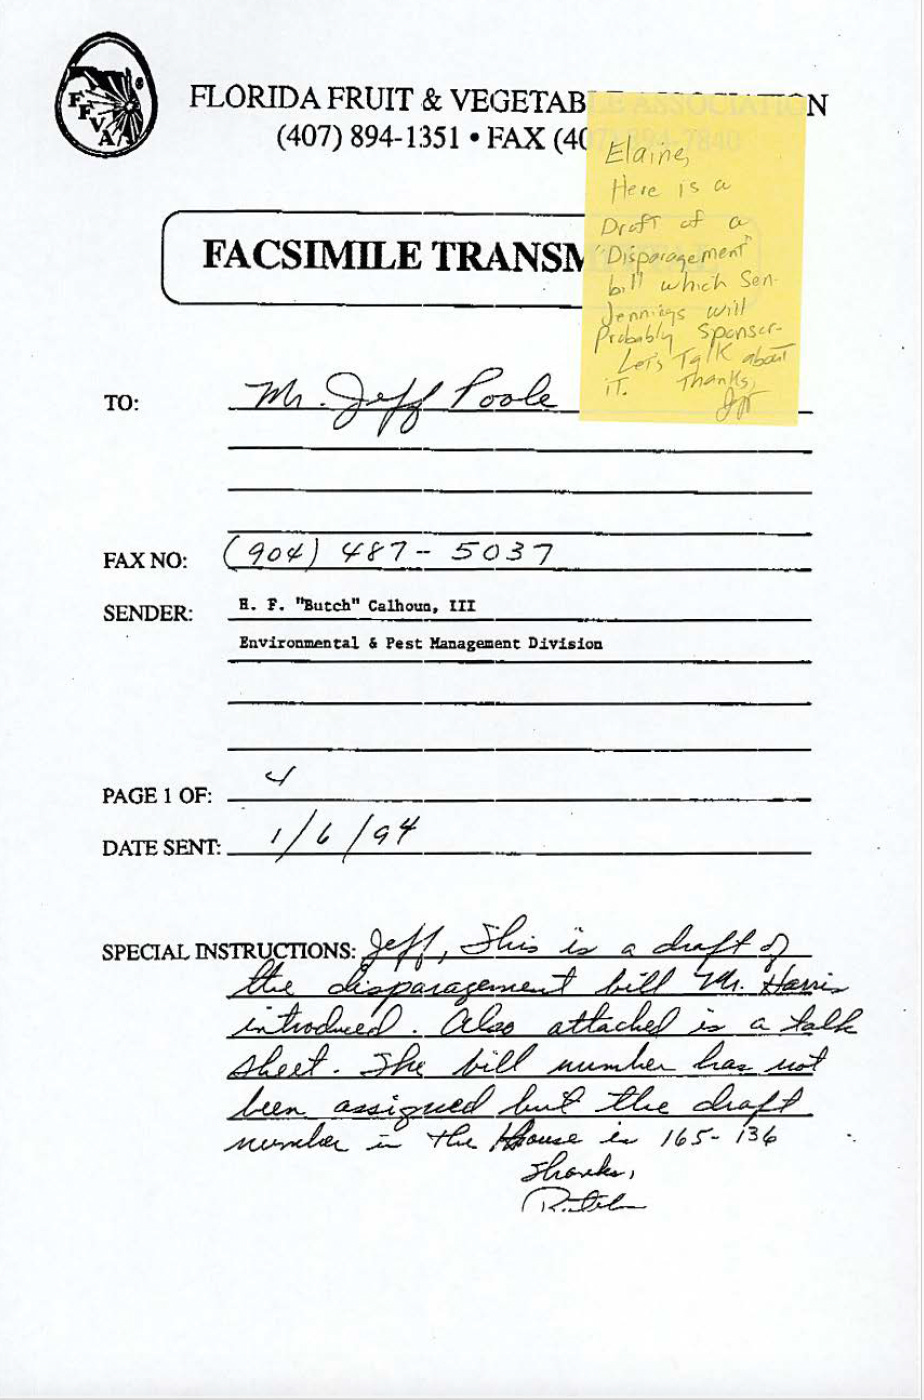 FFVA
FLORIDA FRUIT & VEGETABLE ASSOCIATION
(407) 894-1351 • FAX (407) 894-7840
FACSIMILE TRANSMITTAL
Elaine,
Here is a
Draft of a
"Disparagement"
bill which Sen.
Jennings will
Probably Sponser.
Let's Talk about
iT. Thanks,
TO: Mr. Jeff Poole
FAX NO: (904) 487-5037
SENDER: H. F. "Butch" Calhoun, III
Environmental & Pest Management Division
PAGE 1 OF: 4
DATE SENT: 1/6/94
SPECIAL INSTRUCTIONS: Jeff, This is a draft of
the disparagement bill Mr. Harris
introduced. Also attached is a talk
sheet. The bill number has not
been assigned but the draft
number in the House is 165-136
Thanks,
Butch